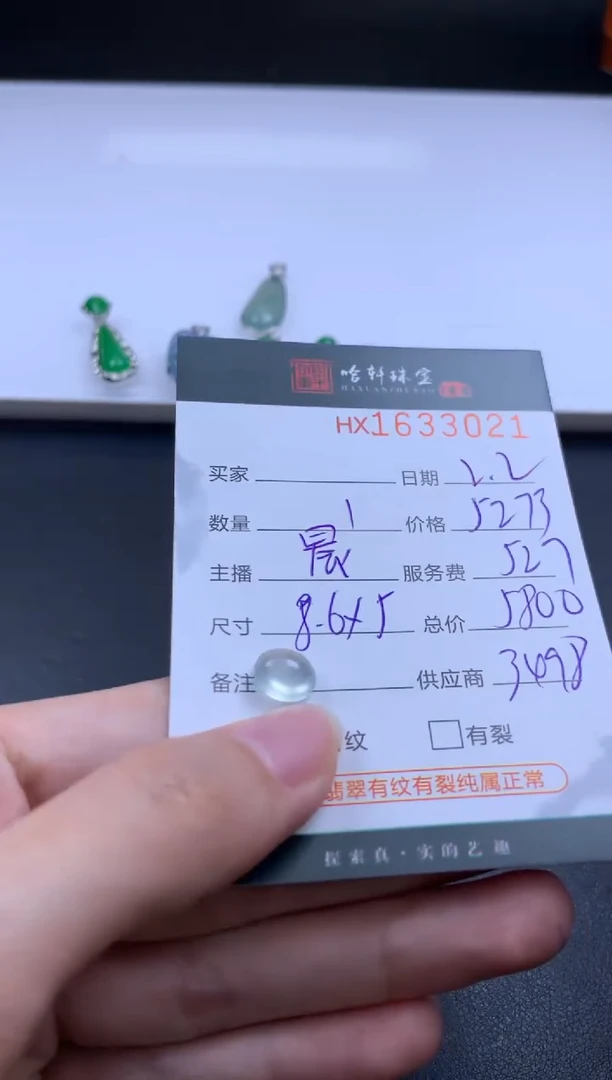 哈轩珠宝
HX1633021
买家 日期 2.2
数量 1 价格 5273
主播 晨 服务费 527
尺寸 8.6x5 总价 5800
备注 供应商 3498
纹 有裂
翡翠有纹有裂纯属正常
探索真·实的艺趣